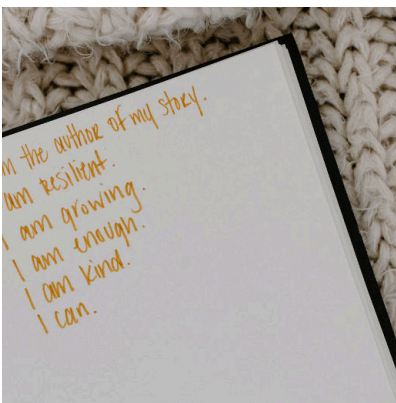 m the author of my story.
am resilient.
I am growing.
I am enough.
I am kind.
I can.